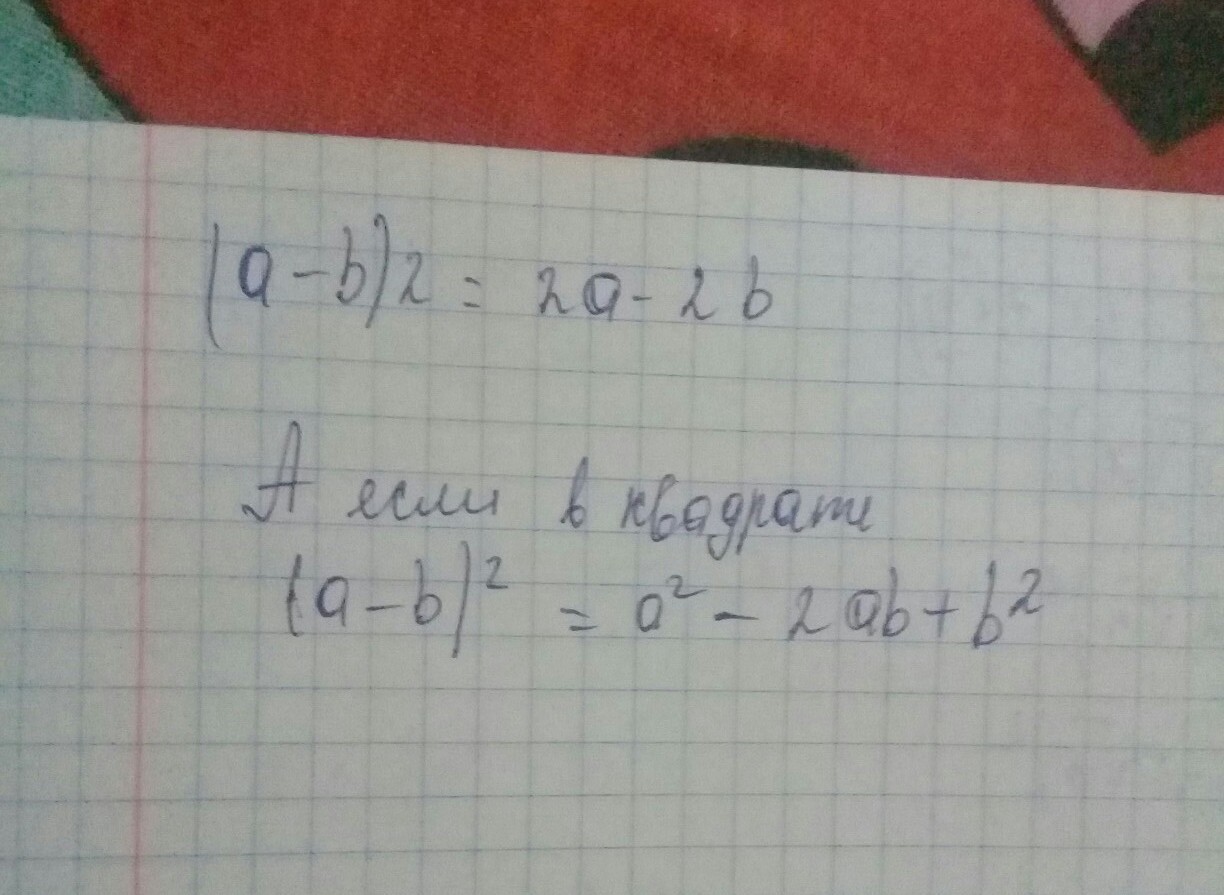 (a-b)2 = 2a - 2b
А если в квадрате
(a-b)² = a² - 2ab + b²